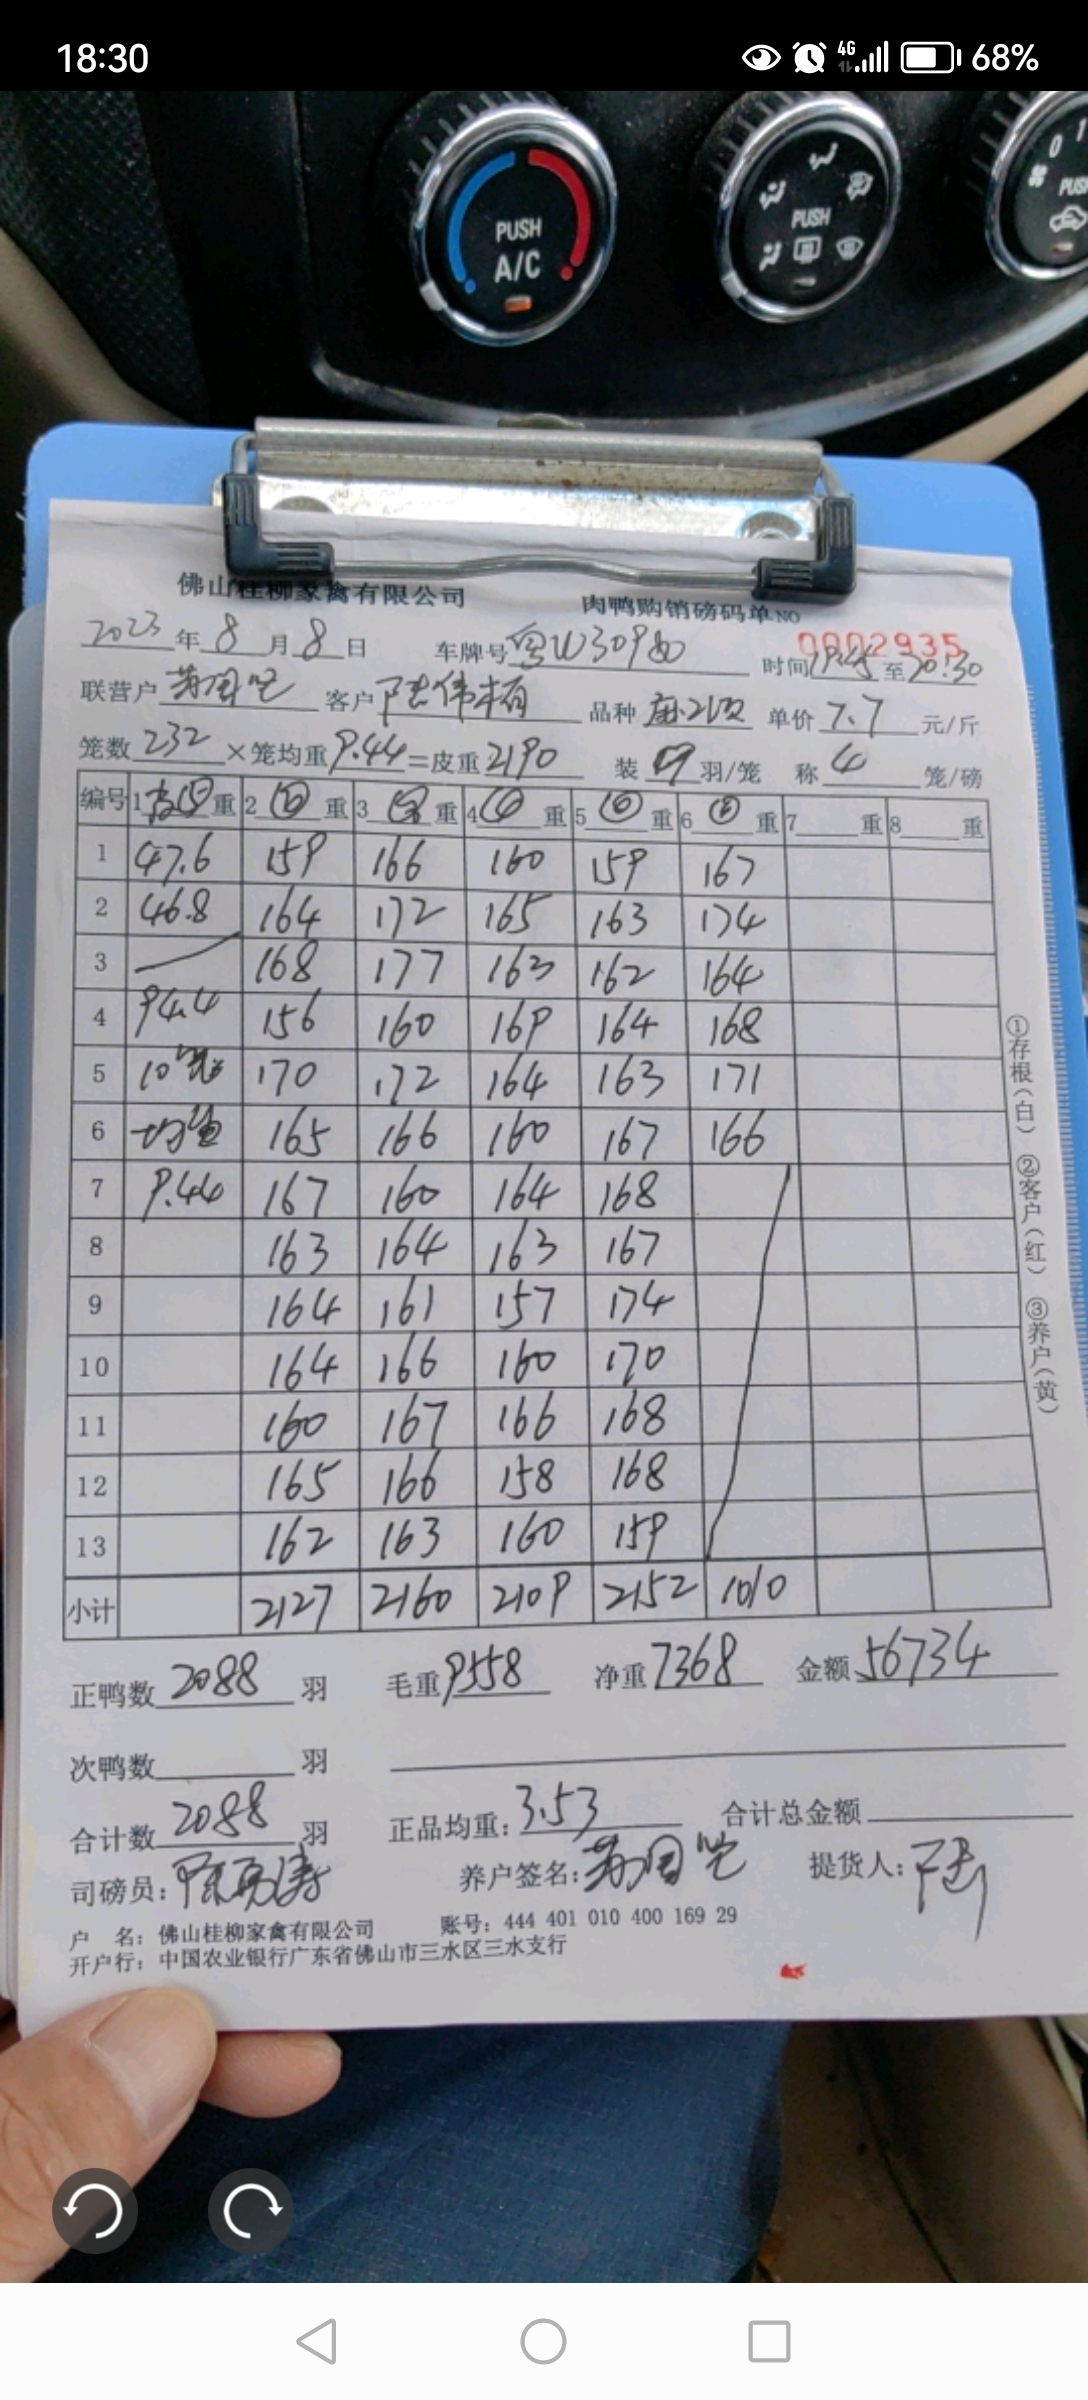 18:30 4G 68%
PUSH A/C PUSH 0 1 PUSH
佛山桂柳家禽有限公司 肉鸭购销磅码单 NO 0002935
2023年8月8日 车牌号粤W309 时间 至20:30
联营户 客户陆伟 品种 单价7.7元/斤
笼数232×笼均重9.44=皮重2190 装9羽/笼 称4笼/磅
编号 1 重 2 重 3 重 4 重 5 重 6 重 7 重 8 重
1 47.6 159 166 160 159 167
2 46.8 164 172 165 163 174
3 168 177 163 162 164
4 94.4 156 160 169 164 168
5 10笼 170 172 164 163 171
6 均重 165 166 160 167 166
7 9.44 167 160 164 168
8 163 164 163 167
9 164 161 157 174
10 164 166 160 170
11 160 167 166 168
12 165 166 158 168
13 162 163 160 159
小计 2127 2160 2109 2152 1010
正鸭数2088羽 毛重9558 净重7368 金额56734
次鸭数 羽
合计数2088羽 正品均重:3.53 合计总金额
司磅员: 养户签名: 提货人:陆
户 名:佛山桂柳家禽有限公司 账号:444 401 010 400 169 29
开户行:中国农业银行广东省佛山市三水区三水支行
①存根(白) ②客户(红) ③养户(黄)